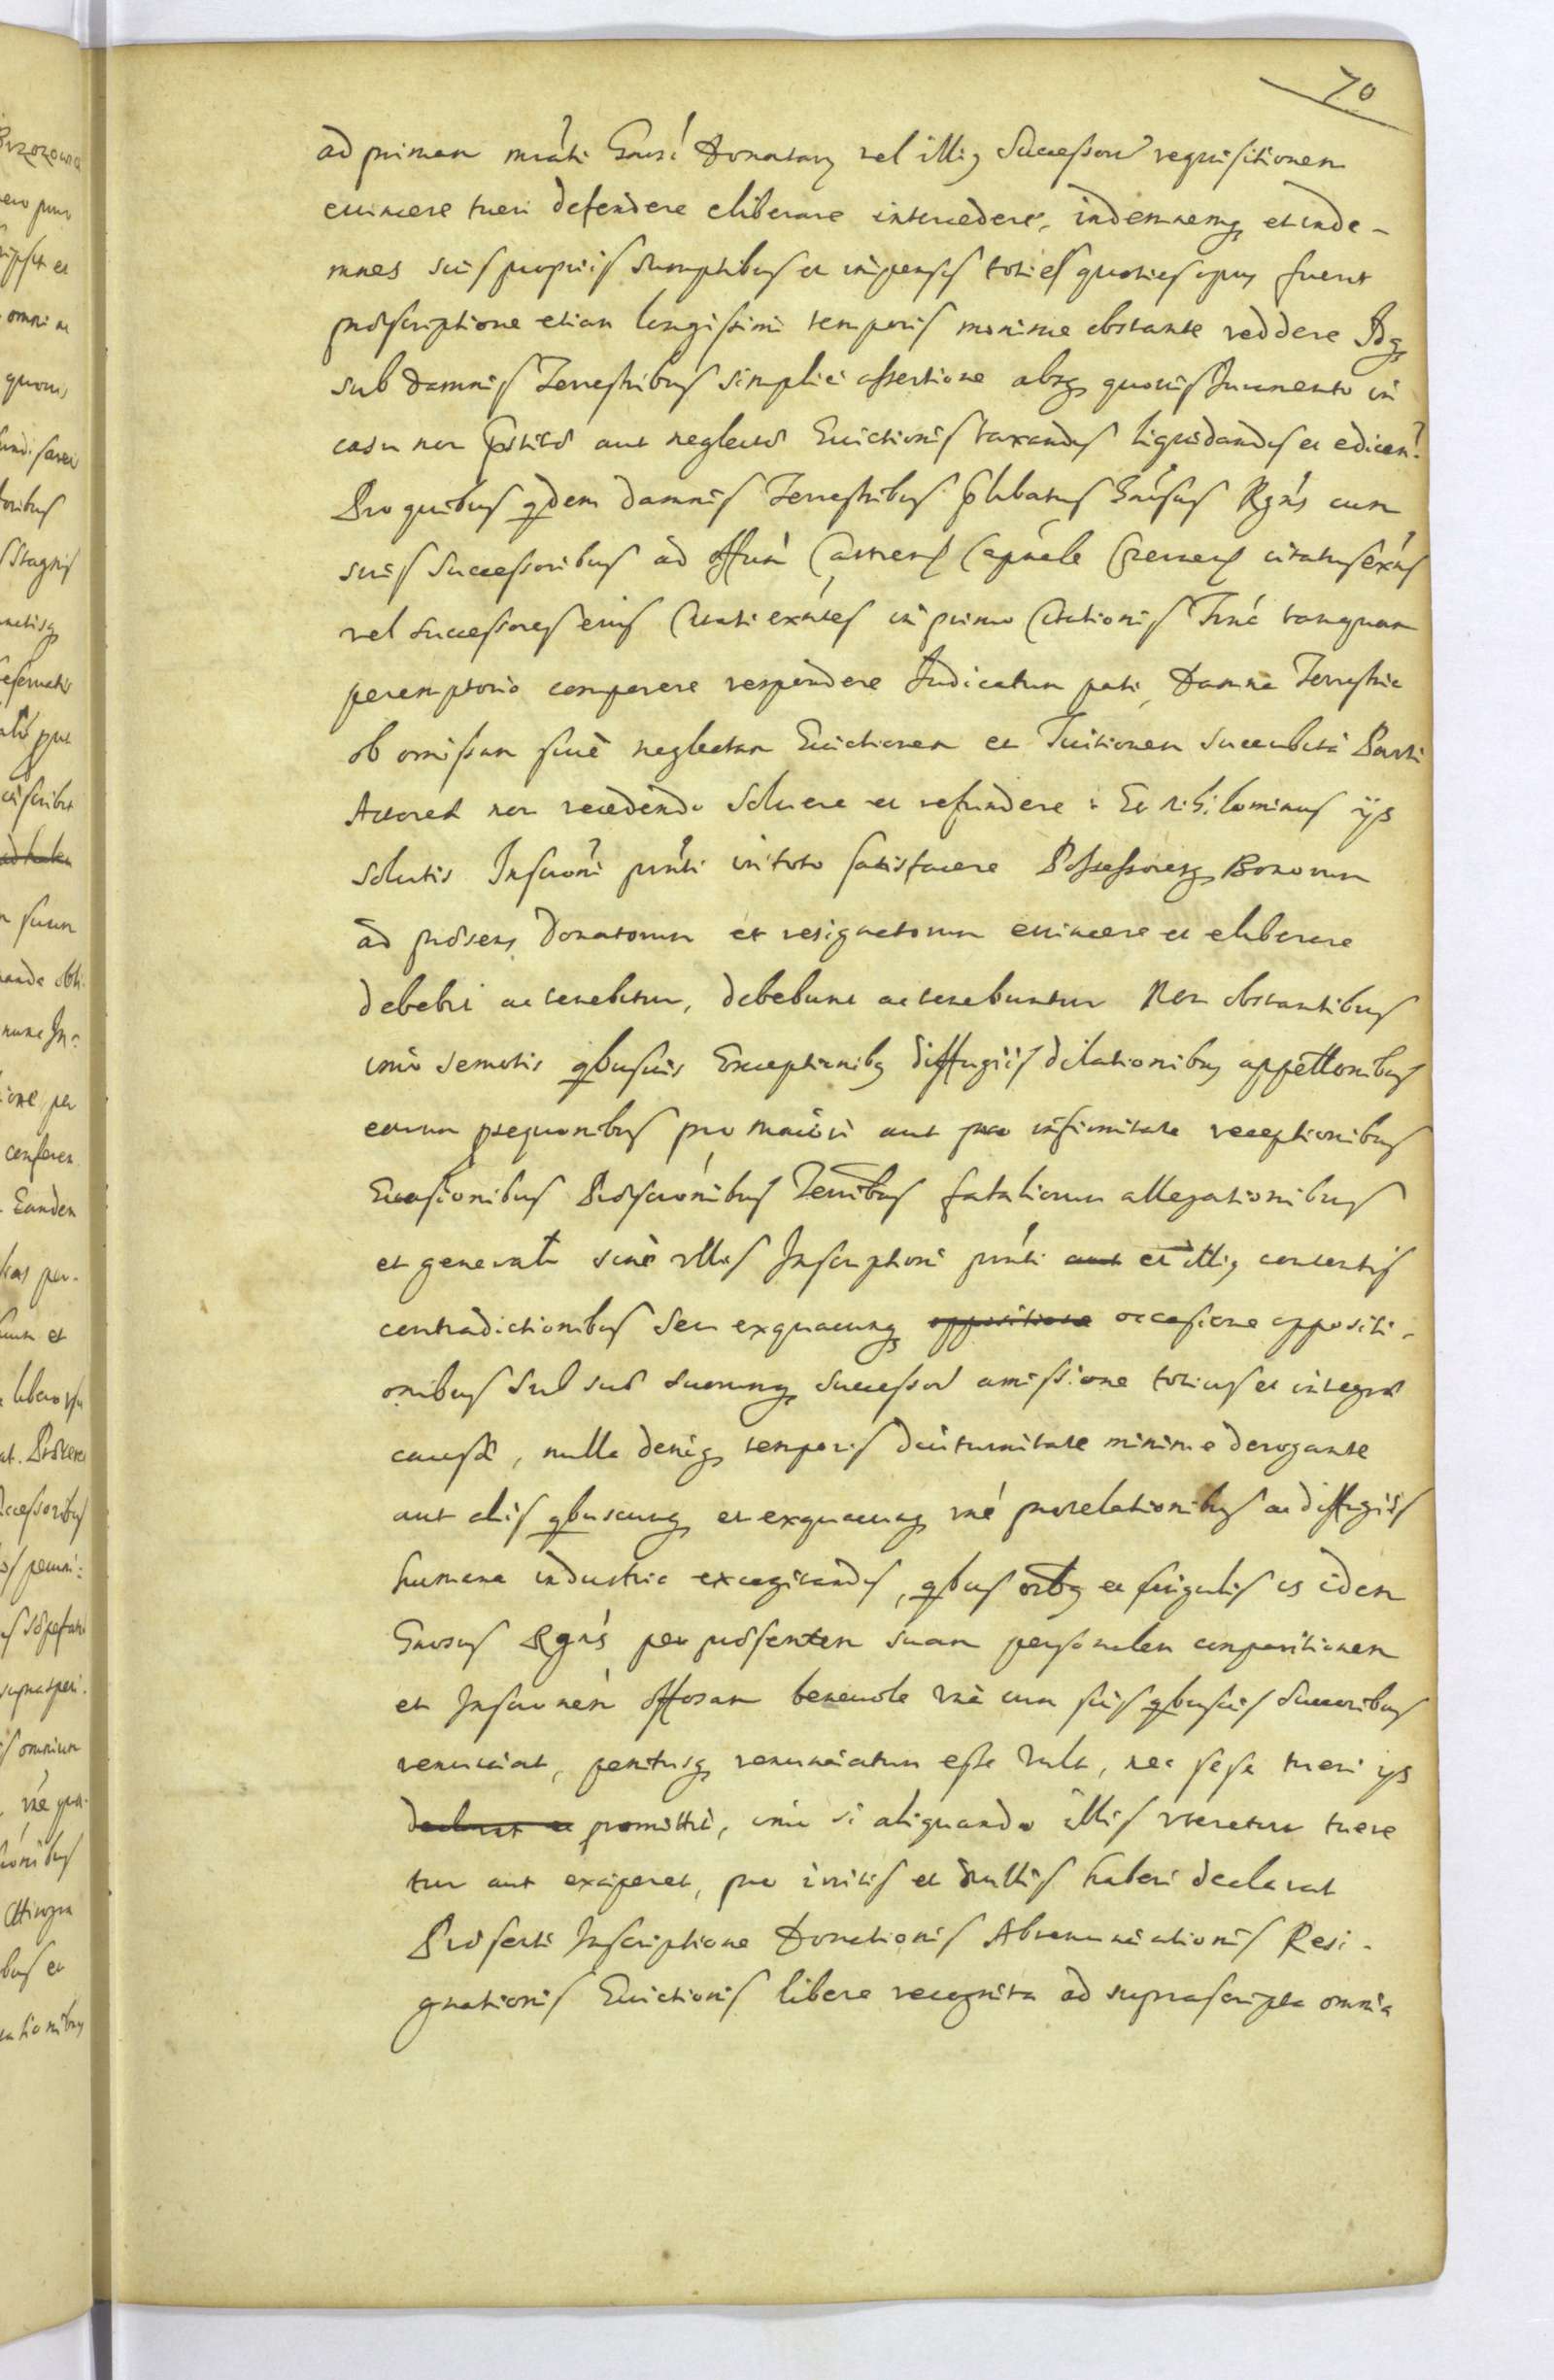 70
ad primam mrãti Gnosi Donatarij vel illiq Successorũ requisitionem
euincere tueri defendere eliberare intercedere, indemnemq et inde-
mnes suis propriis sumptibus et impensis toties quoties opus fuerit
præscriptione etiam longissimi temporis minime obstante reddere Idq
sub damnis Terrestribus simplici assertione absq quouis Iuramento in
casu non pstitæ aut neglectæ Euictionis taxandis liquidandis et edicen:
Pro quibus qdem damnis Terrestribus plibatus Gnosus Rgns cum
suis Successoribus ad offum Castren Capnale Cremen citatus exns
vel Successores eius Citati exntes in primo Citationis Trno tanquam
peremptorio comparere respondere Iudicatum pati, Damna Terrestria
ob omissam siue neglectam Euictionem et Tuitionem succubita Parti
Actorea non recedendo Soluere et refundere: Et nihilominus ijs
solutis Inscroni pnti in toto satisfacere Possessoresq Bonorum
ad præsens donatorum et resignatorum euincere et eliberare
debebit ac tenebitur, debebunt ac tenebuntur Non obstantibus
imo semotis qbusuis Exceptionibq diffugiis dilationibus appellonibus
earum psequonibus pro maiori aut pro infirmitate receptionibus
Euasionibus Præscronibus Terribus fatalium allegationibus
et generalr sine vllis Inscriptioni pnti aut et illiq contentis
contradictionibus seu exquacunq oppositione occasione oppositi-
onibus Sub suæ suorumq Successorũ amissione totius et integræ
causæ, nulla deniq temporis diuturnitate minime derogante
aut aliis qbuscunq et exquacunq rne prorelationibus ac diffugiis
humana industria excogitandis, qbus oibq et singulis is idem
Gnosus Rgns per præsentem suam personalem comparitionem
et Inscronem offosam beneuole vna cum suis qbusuis Succoribus
renunciat, penitusq renunciatum esse vult, nec sese tueri ijs
declarat et promittit, imo si aliquando illis vteretur tuere
tur aut exciperet, pro irritis et nullis haberi declarat
Præsenti Inscriptione Donationis Abrenunciationis Resi-
gnationis Euictionis libere recognita ad suprascripta omnia